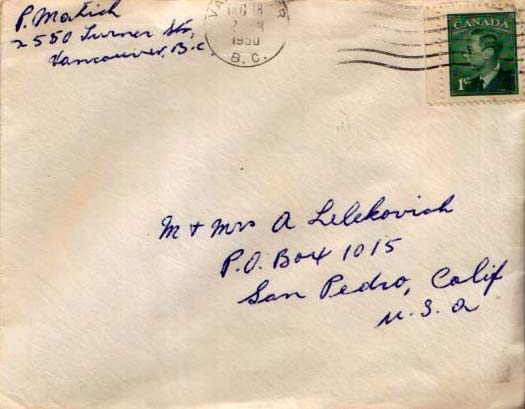 P. Matich
2550 Turner Str,
Vancouver, B.C.
1950
B.C.
CANADA
1¢
M + Mrs A Lelekovich
P.O. Box 1015
San Pedro, Calif
U.S.A